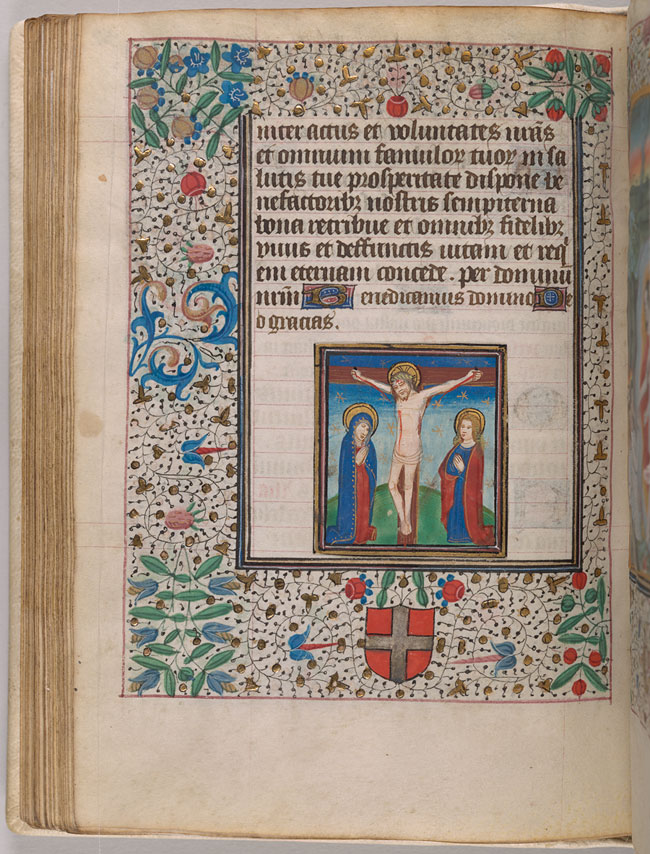 iter actus et voluntates nras
et omnium famulor tuor in sa
lutis tue prosperitate dispone be
nefactoribꝫ nostris sempiterna
bona retribue et omnibꝫ fidelibꝫ
viuis et deffunctis vitam et reqⁱ
em eternam concede. per dominū
nrm̄ Benedicamus domino De
o gracias.